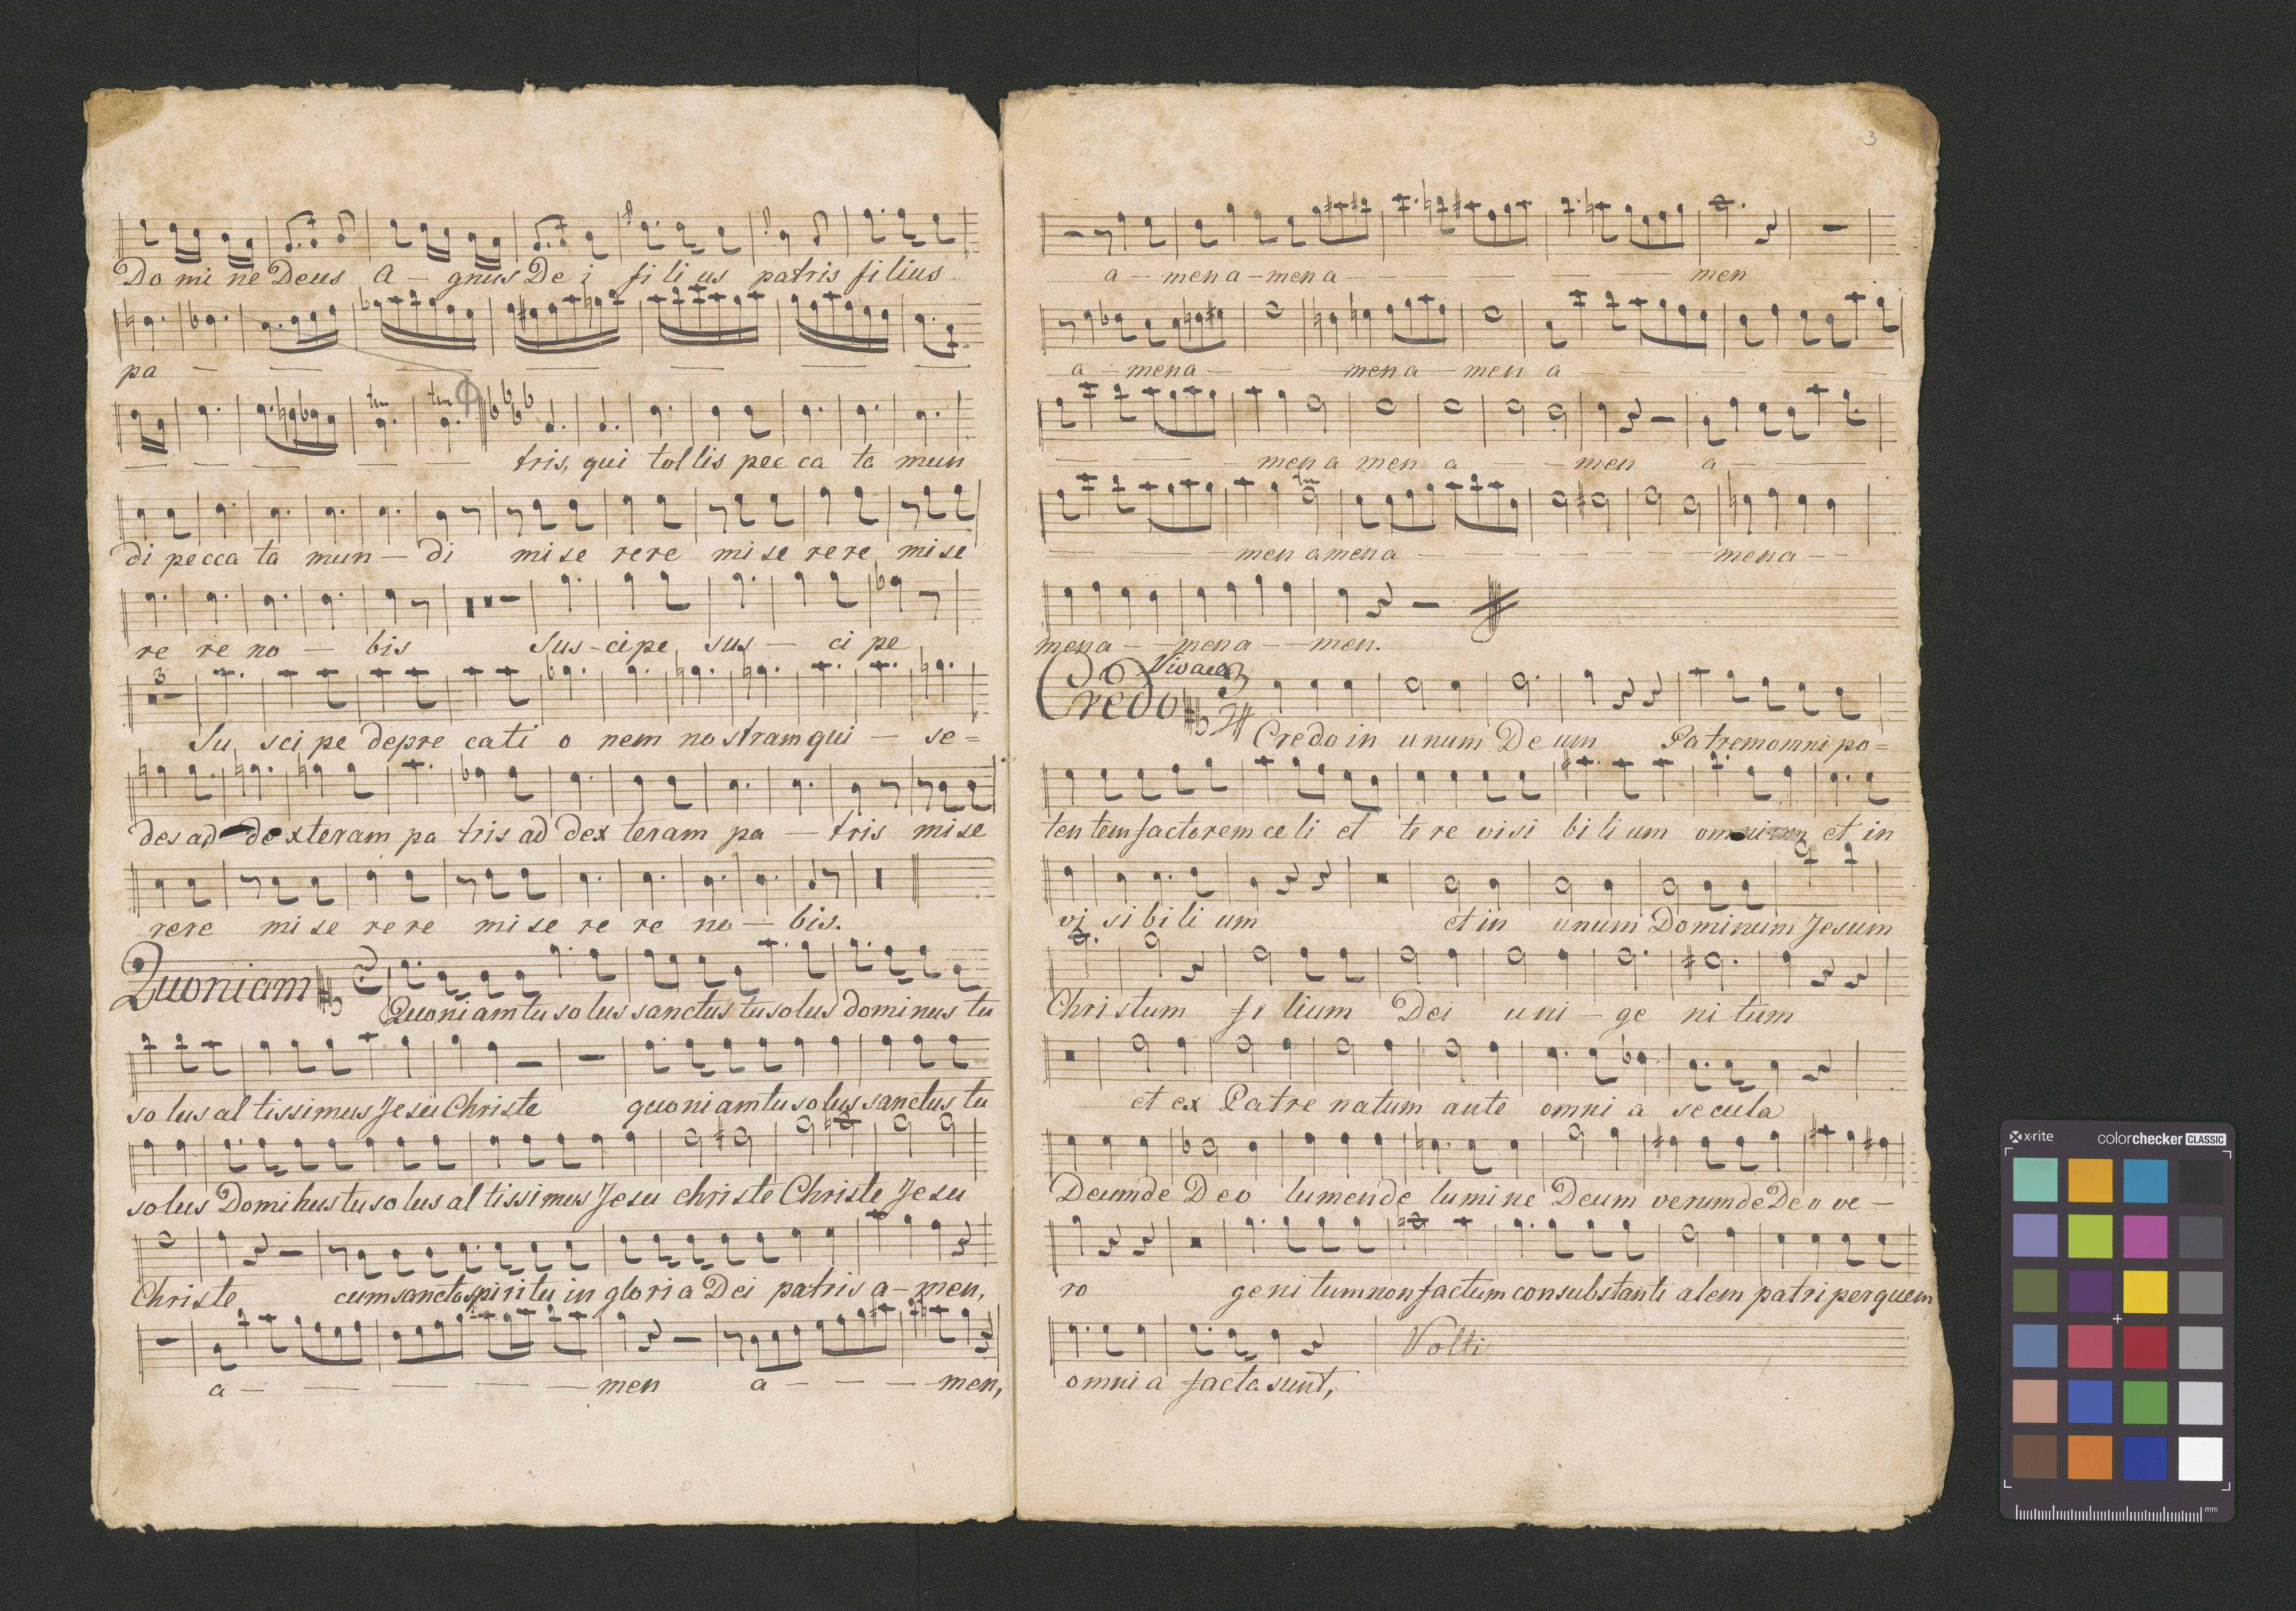 Do mi ne Deus A - gnus De i fi li us patris fi lius
pa - - - - - - -
- - - - - tris, qui tol lis pec ca ta mun
di pecca ta mun - di mi se re re mi se re re mi se
re re no - bis Sus - ci pe sus - ci pe
3
Su sci pe depre cati o nem no stram qui - se =
des ad dexteram pa tris ad dex teram pa - tris mi se
rere mi se re re mi se re re no - bis.
Quoniam
Quoni am tu so lus sanctus tu solus dominus tu
so lus al tissimus Jesu Christe quoni am tu so lus sanctus tu
solus Dominus tu so lus al tissimus Jesu christe Christe Jesu
Christe cum sancto spiritu in glori a Dei patris a - men,
a - - - - - men a - - - men,
3
a - men a - men a - - - - - men
a - men a - - - men a - men a - - -
- - - - men a men a - - men a - -
- - - men a men a - - - - - men a - -
men a - - men a - - men.
Credo Vivace 3
Credo in unum De um Patrem omni po =
ten tem factorem ce li et te re visi bi li um omnium et in
vi si bi li um et in unum Dominum Jesum
Christum fi lium Dei uni - ge ni tum
et ex Patre natum ante omni a secula
Deum de Deo lumen de lumi ne Deum verum de De o ve -
ro geni tum non factum consubstanti alem patri per quem
Volti
omni a facta sunt,
x·rite colorchecker CLASSIC
mm